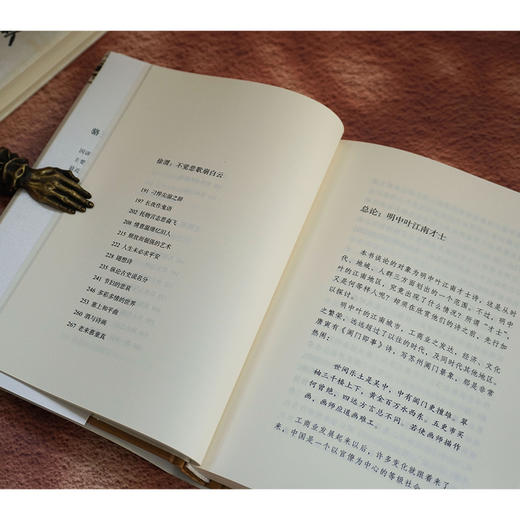 徐渭：不觉悲歌崩白云
191 刁悍尖溜之辞
197 长夜作鬼语
202 托物言志思奋飞
208 情意温绪忆旧人
215 颓放而倔强的艺术
222 人生未必求平安
228 随想诗
235 纵论古史说喜分
241 节妇的悲哀
246 多彩多情的世界
255 塞上和平曲
260 酒与诗画
267 老来猎童真
总论：明中叶江南才士
本书谈论的对象为明中叶江南才士诗，这是从时
代、地域、人群三方面划出的一个范围。不过，明中
叶的江南地区，究竟出现了什么情况？所谓“才士”，
又是何等样人呢？却须在欣赏他们的诗之前，先行加
以探讨。
明中叶的江南城市，工商业之发达，经济、文化
之繁荣，远远超过了以往的时代，及同时代其他地区。
唐寅有《阊门即事》诗，写苏州阊门景象，那是非常
热闹：
世间乐土是吴中，中有阊门更擅雄。翠
袖三千楼上下，黄金百万水西东。五更市买
何曾绝，四远方言总不同。若使画师描作
画，画师应道画难工。
工商业发展起来以后，许多变化就跟着来了
来，中国是一个以官僚为中心的等级社会